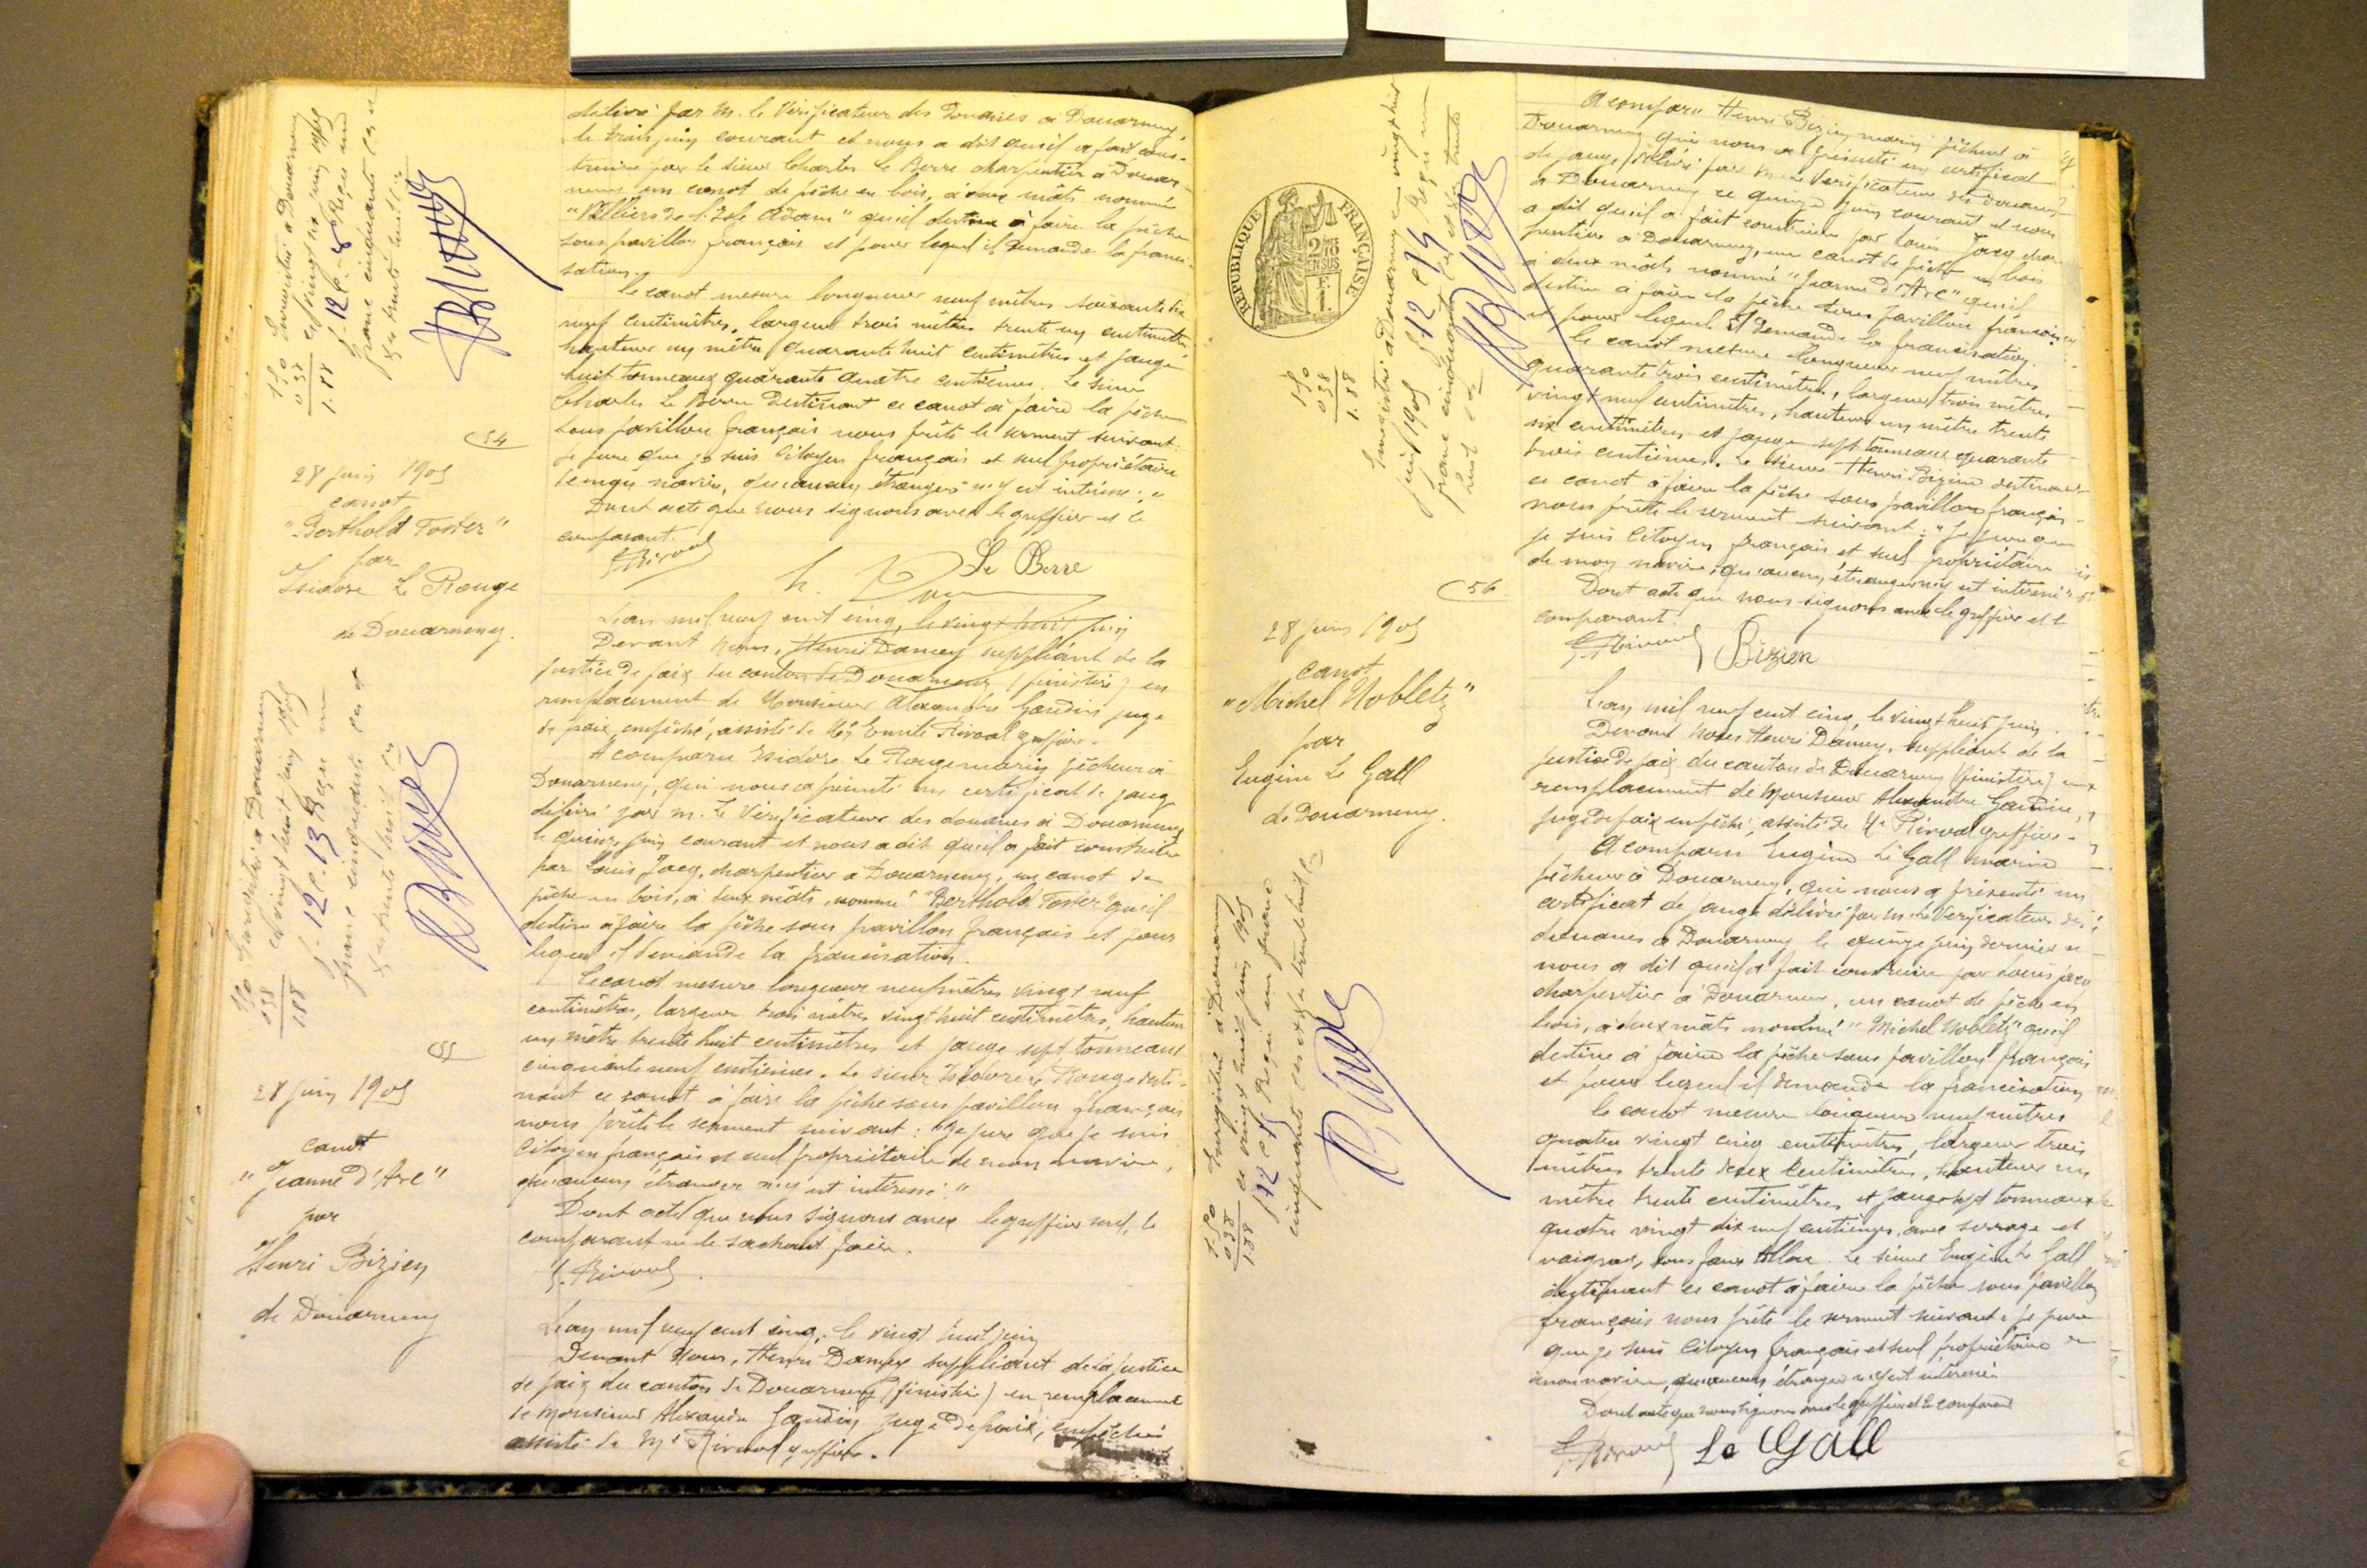 délivré par M. le Vérificateur des Douanes à Douarnenez,
le trois juin courant et nous a dit qu'il a fait cons-
truire par le sieur Charles Le Berre charpentier à Douar-
nenez un canot de pêche en bois, à deux mâts nommé
"Villiers de l'Isle Adam" qu'il destine à faire la pêche
sous pavillon français et pour lequel il demande la franci-
sation.
Le canot mesure longueur neuf mètres soixante dix
neuf centimètres, largeur trois mètres trente un centimètres
hauteur un mètre quarante huit centimètres et jauge
huit tonneaux quarante quatre centièmes. Le sieur
Charles Le Berre destinant ce canot à faire la pêche
sous pavillon français nous prête le serment suivant:
je jure que je suis Citoyen français et seul propriétaire
navire, qu'aucun étranger n'y est intéressé
Dont acte que nous signons avec le greffier et le
comparant.
Le Berre
54
28 juin 1905
canot
"Berthold Foster"
par
Isidore Le Rouge
de Douarnenez.
L'an mil neuf cent cinq, le vingt huit juin
Devant Nous, Henri Damey suppléant de la
justice de paix du canton de Douarnenez (finistère) en
remplacement de Monsieur Alexandre Gaudin juge
de paix empêché, assisté de Me Emile Rivoal greffier.
A comparu Isidore Le Rouge marin pêcheur à
Douarnenez, qui nous a présenté un certificat de jauge
délivré par M. Le Vérificateur des douanes à Douarnenez
le quinze juin courant et nous a dit qu'il a fait construire
par Louis Jacq, charpentier à Douarnenez, un canot de
pêche en bois, à deux mâts, nommé "Berthold Foster" qu'il
destine à faire la pêche sous pavillon français et pour
lequel il demande la francisation.
Le canot mesure longueur neuf mètres vingt neuf
centimètres, largeur trois mètres vingt huit centimètres, hauteur
un mètre trente huit centimètres et jauge sept tonneaux
cinquante neuf centièmes. Le sieur Isidore Le Rouge desti-
nant ce canot à faire la pêche sous pavillon français
nous prête le serment suivant: "Je jure que je suis
Citoyen français et seul propriétaire de mon navire,
qu'aucun étranger n'y est intéressé."
Dont acte que nous signons avec le greffier seul, le
comparant ne le sachant faire.
E. Rivoal.
55
28 juin 1905
canot
"Jeanne d'Arc"
par
Henri Bizien
de Douarnenez
L'an mil neuf cent cinq, le vingt huit juin
Devant Nous, Henri Damey suppléant de la justice
de paix du canton de Douarnenez (finistère) en remplacement
de Monsieur Alexandre Gaudin juge de paix, empêché
assisté de Me Rivoal greffier.
REPUBLIQUE FRANÇAISE
A comparu Henri Bizien marin pêcheur à
Douarnenez qui nous a présenté un certificat
de jauge délivré par M. le Vérificateur des douanes
à Douarnenez le quinze juin courant et nous
a dit qu'il a fait construire par Louis Jacq char-
pentier à Douarnenez, un canot de pêche en bois
à deux mâts nommé "Jeanne d'Arc" qu'il
destine à faire la pêche sous pavillon français
et pour lequel il demande la francisation.
Le canot mesure longueur neuf mètres
quarante trois centimètres, largeur trois mètres
vingt neuf centimètres, hauteur un mètre trente
six centimètres et jauge sept tonneaux quarante
trois centièmes. Le sieur Henri Bizien destinant
ce canot à faire la pêche sous pavillon français
nous prête le serment suivant: "Je jure que
je suis Citoyen français et seul propriétaire
de mon navire, qu'aucun étranger n'y est intéressé"
Dont acte que nous signons avec le greffier et le
comparant.
E. Rivoal Bizien
56
28 juin 1905
canot
"Michel Nobletz"
par
Eugène Le Gall
de Douarnenez.
L'an mil neuf cent cinq, le vingt huit juin.
Devant Nous Henri Damey, suppléant de la
justice de paix du canton de Douarnenez (finistère) en
remplacement de Monsieur Alexandre Gaudin,
juge de paix empêché, assisté de Me Rivoal greffier.
A comparu Eugène Le Gall marin
pêcheur à Douarnenez, qui nous a présenté un
certificat de jauge délivré par M. Le Vérificateur des
douanes à Douarnenez le quinze juin dernier et
nous a dit qu'il a fait construire par Louis Jacq
charpentier à Douarnenez, un canot de pêche en
bois, à deux mâts nommé "Michel Nobletz" qu'il
destine à faire la pêche sous pavillon français
et pour lequel il demande la francisation
Le canot mesure longueur neuf mètres
quatre vingt cinq centimètres, largeur trois
mètres trente deux centimètres, hauteur un
mètre trente centimètres et jauge sept tonneaux
quatre vingt dix neuf centièmes, avec serrage et
vaigrage, sous faux tillac. Le sieur Eugène Le Gall
destinant ce canot à faire la pêche sous pavillon
français nous prête le serment suivant: je jure
que je suis Citoyen français et seul propriétaire de
mon navire, qu'aucun étranger n'y est intéressé
Dont acte que nous signons avec le greffier et le comparant
E. Rivoal Le Gall